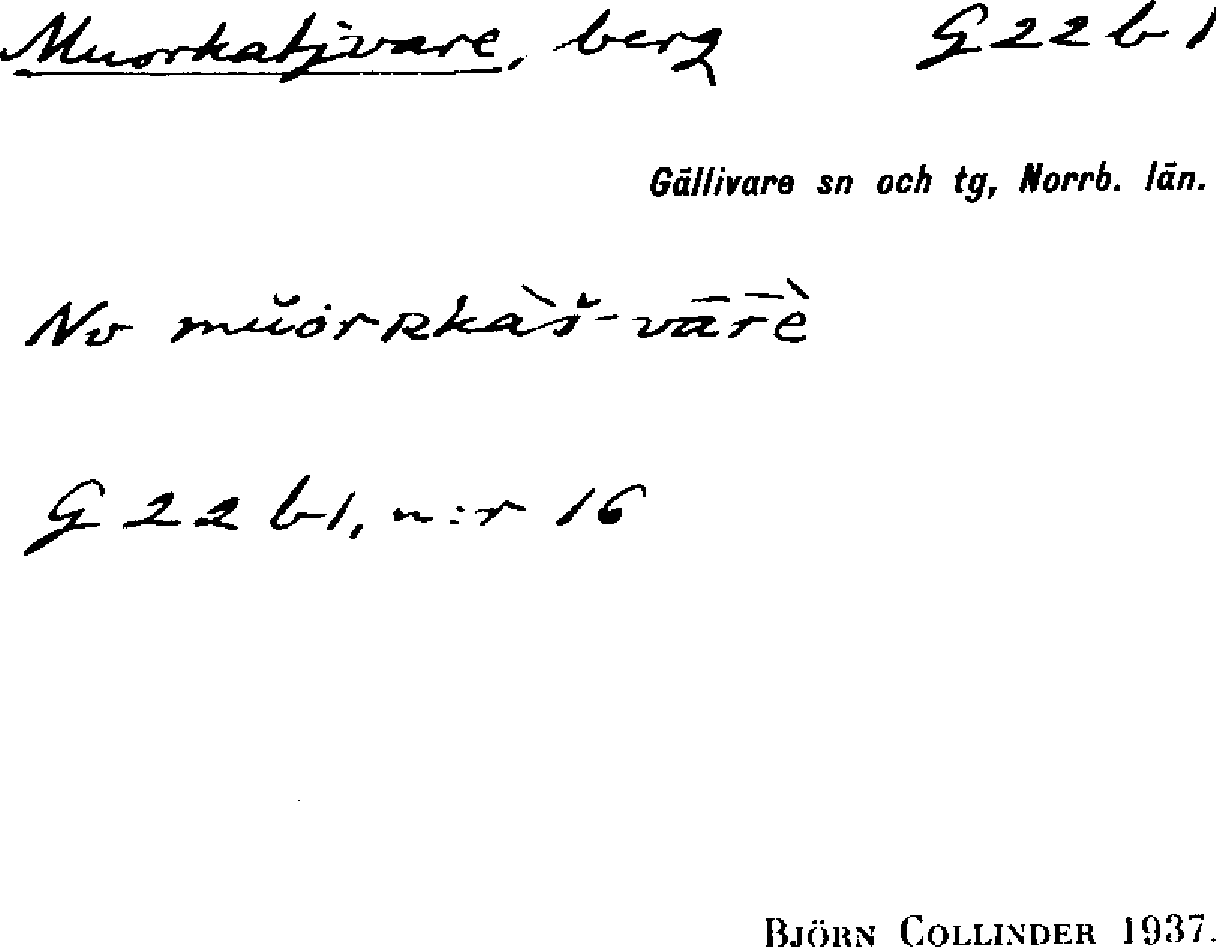 Muorkatjvare, berg G 22 b 1
Gällivare sn och tg, Norrb. län.
Nv mŭȯrRkàš-vārḕ
G 22 b 1, n:r 16
BJÖRN COLLINDER 1937.